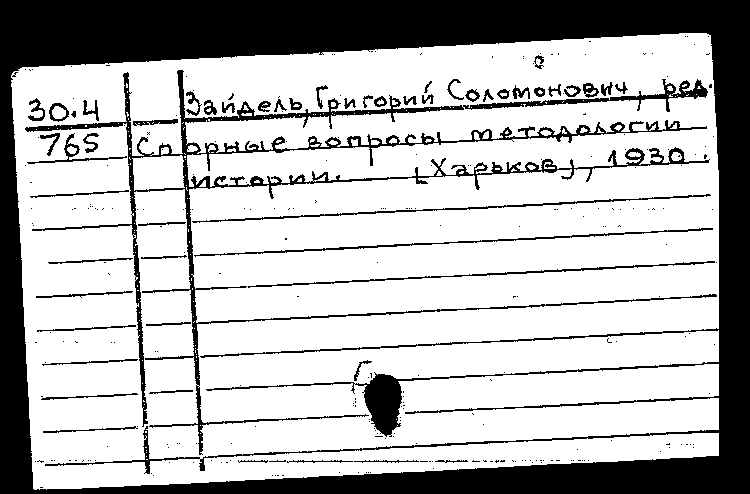 30.4 Зайдель, Григорий Соломонович, ред.
765 Спорные вопросы методологии
истории. [Харьков], 1930.